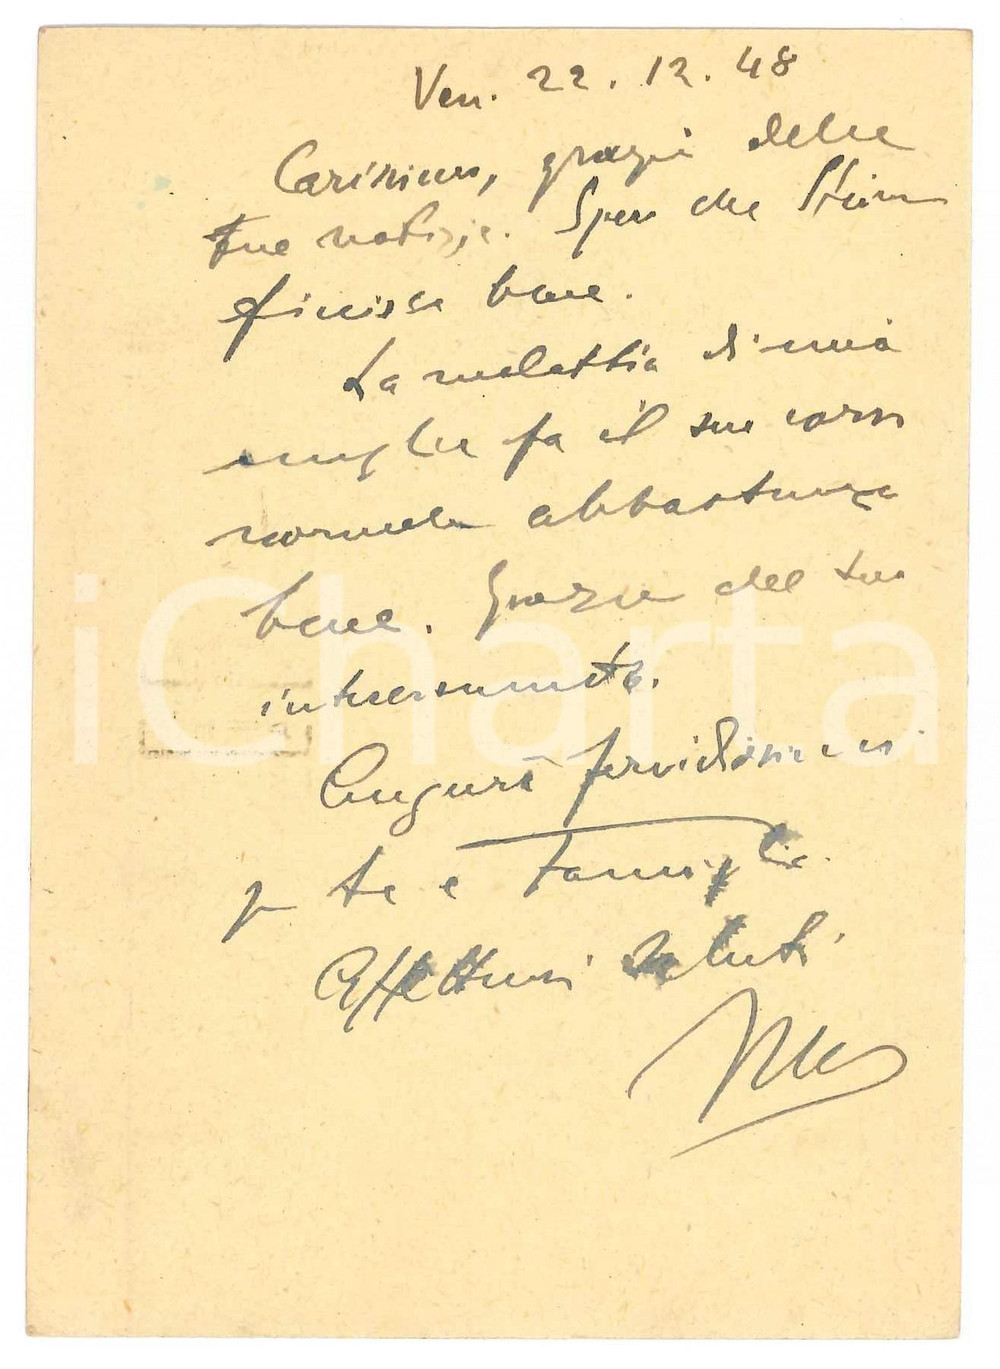 Ven. 22.12.48
Carissimo, grazie delle
tue notizie. Spero che
finisca bene.
La malattia di mia
moglie fa il suo corso
normale abbastanza
bene. Grazie del tuo
interessamento.
Auguri fervidissimi
per te e famiglia.
Affettuosi saluti
iCharta